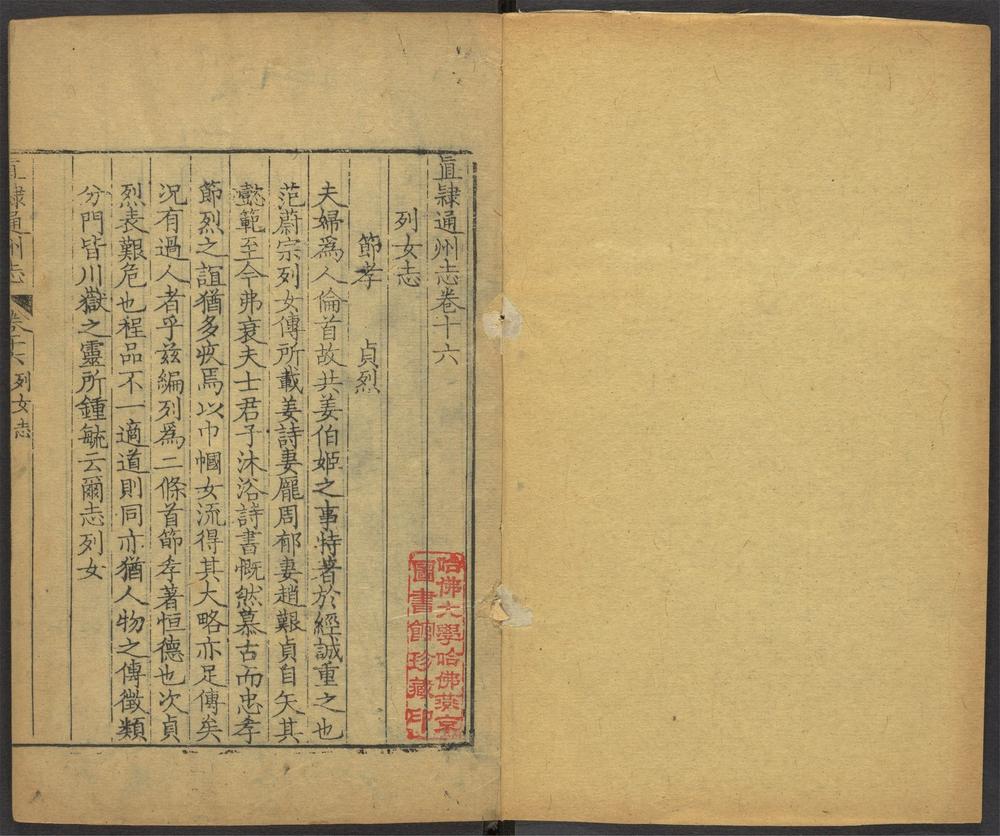 直隸通州志卷十六
列女志
節孝　貞烈
夫婦爲人倫首故共姜伯姬之事特著於經誠重之也
范蔚宗列女傳所載姜詩妻龐周郁妻趙艱貞自矢其
懿範至今弗衰夫士君子沐浴詩書慨然慕古而忠孝
節烈之誼猶多疚焉以巾幗女流得其大略亦足傳矣
況有過人者乎茲編列爲二條首節孝著恒德也次貞
烈表艱危也程品不一適道則同亦猶人物之傳徵類
分門皆川嶽之靈所鍾毓云爾志列女
直隸通州志
卷十六
列女志
哈佛大學哈佛燕京
圖書館珍藏印